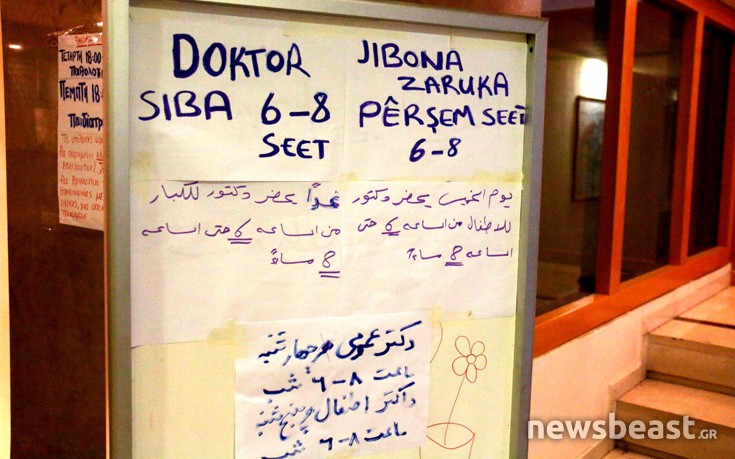 DOKTOR
SIBA 6-8
SEET
JIBONA
ZARUKA
PÊRŞEM SEET
6-8
غداً يحضر دكتور للكبار
من الساعه 6 حتى الساعه
8 مساءً
يوم الخميس يحضر دكتور
للاطفال من الساعه 6 حتى
الساعه 8 مساءً
دکتر عمومی هر چهارشنبه
ساعت ۸-۶ شب
داکتر اطفال پنج شنبه
ساعت ۸-۶ شب
ΤΕΤΑΡΤΗ 18:00
ΠΑΘΟΛΟΓ
ΠΕΜΠΤΗ 18
ΠΑΙΔΙΑΤΡ
newsbeast.GR